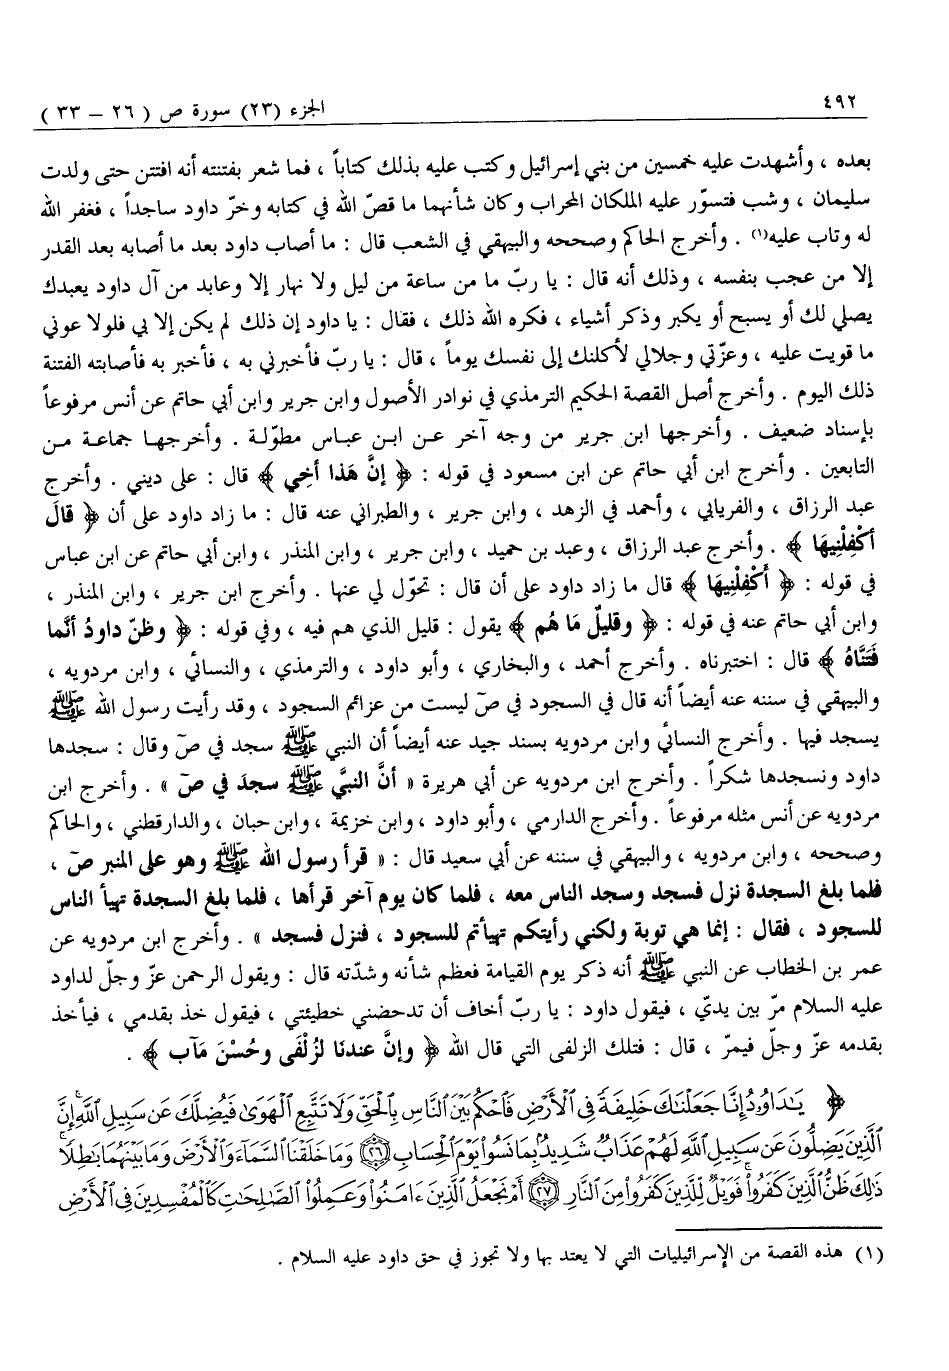 ٤٩٢
الجزء (٢٣) سورة ص ( ٢٦ – ٣٣ )
بعده ، وأشهدت عليه خمسين من بني إسرائيل وكتب عليه بذلك كتاباً ، فما شعر بفتنته أنه افتتن حتى ولدت
سليمان ، وشب فتسوّر عليه الملكان المحراب وكان شأنهما ما قصّ الله في كتابه وخرّ داود ساجداً ، فغفر الله
له وتاب عليه(١) . وأخرج الحاكم وصححه والبيهقي في الشعب قال : ما أصاب داود بعد ما أصابه بعد القدر
إلا من عجب بنفسه ، وذلك أنه قال : يا ربّ ما من ساعة من ليل ولا نهار إلا وعابد من آل داود يعبدك
يصلي لك أو يسبح أو يكبر وذكر أشياء ، فكره الله ذلك ، فقال : يا داود إن ذلك لم يكن إلا بي فلولا عوني
ما قويت عليه ، وعزّتي وجلالي لأكلنك إلى نفسك يوماً ، قال : يا ربّ فأخبرني به ، فأخبر به فأصابته الفتنة
ذلك اليوم . وأخرج أصل القصة الحكيم الترمذي في نوادر الأصول وابن جرير وابن أبي حاتم عن أنس مرفوعاً
بإسناد ضعيف . وأخرجها ابن جرير من وجه آخر عن ابن عباس مطوّلة . وأخرجها جماعة من
التابعين . وأخرج ابن أبي حاتم عن ابن مسعود في قوله : ﴿ إنَّ هَذا أخِي ﴾ قال : على ديني . وأخرج
عبد الرزاق ، والفريابي ، وأحمد في الزهد ، وابن جرير ، والطبراني عنه قال : ما زاد داود على أن ﴿ قالَ
أكْفِلْنِيهَا ﴾ . وأخرج عبد الرزاق ، وعبد بن حميد ، وابن جرير ، وابن المنذر ، وابن أبي حاتم عن ابن عباس
في قوله : ﴿ أَكْفِلْنِيهَا ﴾ قال ما زاد داود على أن قال : تحوّل لي عنها . وأخرج ابن جرير ، وابن المنذر ،
وابن أبي حاتم عنه في قوله : ﴿ وقليلٌ مَا هُم ﴾ يقول : قليل الذي هم فيه ، وفي قوله : ﴿ وظنّ داودُ أنَّما
فَتَنَّاهُ ﴾ قال : اختبرناه . وأخرج أحمد ، والبخاري ، وأبو داود ، والترمذي ، والنسائي ، وابن مردويه ،
والبيهقي في سننه عنه أيضاً أنه قال في السجود في صٓ ليست من عزائم السجود ، وقد رأيت رسول الله ﷺ
يسجد فيها . وأخرج النسائي وابن مردويه بسند جيد عنه أيضاً أن النبي ﷺ سجد في صٓ وقال : سجدها
داود ونسجدها شكراً . وأخرج ابن مردويه عن أبي هريرة « أنَّ النبيَّ ﷺ سجدَ في صٓ » . وأخرج ابن
مردويه عن أنس مثله مرفوعاً . وأخرج الدارمي ، وأبو داود ، وابن خزيمة ، وابن حبان ، والدارقطني ، والحاكم
وصححه ، وابن مردويه ، والبيهقي في سننه عن أبي سعيد قال : « قرأ رسول الله ﷺ وهو على المنبر صٓ ،
فلما بلغ السجدة نزل فسجد وسجد الناس معه ، فلما كان يوم آخر قرأها ، فلما بلغ السجدة تهيأ الناس
للسجود ، فقال : إنما هي توبة ولكني رأيتكم تهيأتم للسجود ، فنزل فسجد » . وأخرج ابن مردويه عن
عمر بن الخطاب عن النبي ﷺ أنه ذكر يوم القيامة فعظم شأنه وشدّته قال : ويقول الرحمن عزّ وجلّ لداود
عليه السلام مرّ بين يديّ ، فيقول داود : يا ربّ أخاف أن تدحضني خطيئتي ، فيقول خذ بقدمي ، فيأخذ
بقدمه عزّ وجلّ فيمرّ ، قال : فتلك الزلفى التي قال الله ﴿ وإنَّ عندنَا لزُلْفَى وحُسْنَ مَآب ﴾ .
﴿ يَٰدَاوُۥدُ إِنَّا جَعَلْنَٰكَ خَلِيفَةً فِى ٱلْأَرْضِ فَٱحْكُم بَيْنَ ٱلنَّاسِ بِٱلْحَقِّ وَلَا تَتَّبِعِ ٱلْهَوَىٰ فَيُضِلَّكَ عَن سَبِيلِ ٱللَّهِ ۚ إِنَّ
ٱلَّذِينَ يَضِلُّونَ عَن سَبِيلِ ٱللَّهِ لَهُمْ عَذَابٌ شَدِيدٌۢ بِمَا نَسُوا۟ يَوْمَ ٱلْحِسَابِ ۝٢٦ وَمَا خَلَقْنَا ٱلسَّمَآءَ وَٱلْأَرْضَ وَمَا بَيْنَهُمَا بَٰطِلًا ۚ
ذَٰلِكَ ظَنُّ ٱلَّذِينَ كَفَرُوا۟ ۚ فَوَيْلٌ لِّلَّذِينَ كَفَرُوا۟ مِنَ ٱلنَّارِ ۝٢٧ أَمْ نَجْعَلُ ٱلَّذِينَ ءَامَنُوا۟ وَعَمِلُوا۟ ٱلصَّٰلِحَٰتِ كَٱلْمُفْسِدِينَ فِى ٱلْأَرْضِ
(١) هذه القصة من الإسرائيليات التي لا يعتد بها ولا تجوز في حق داود عليه السلام .